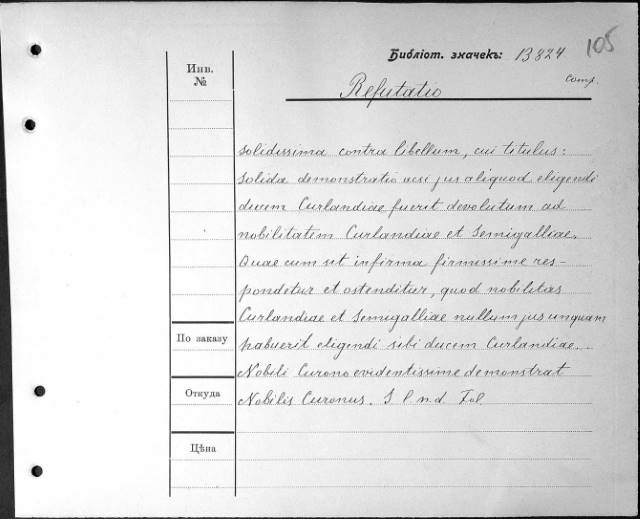 105
Библіот. значекъ: 13824
Comp.
Инв.
№
Refutatio
solidissima contra libellum, cui titulus:
Solida demonstratio acsi jus aliquod eligendi
ducem Curlandiae fuerit devolutum ad
nobilitatem Curlandiae et Semigalliae.
Quae cum sit infirma firmissime res-
pondetur et ostenditur, quod nobilitas
Curlandiae et Semigalliae nullum jus unquam
По заказу
habuerit eligendi sibi ducem Curlandiae.
Nobili Curono evidentissime demonstrat
Откуда
Nobilis Curonus. S l n. d Fol
Цѣна